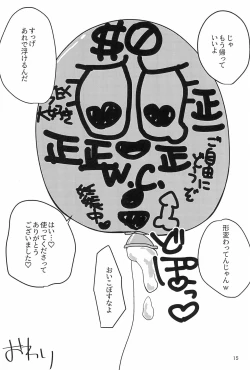 じゃ
もう帰って
いいよ
すっげ
あれで浮けるんだ
$0
正
正
正
正
W.C.
ご自由に
どうぞ
妊娠中♡
形変わってんじゃんw
はい…♡
使ってくださって
ありがとう
ございました♡
おいこぼすなよ
おわり
15